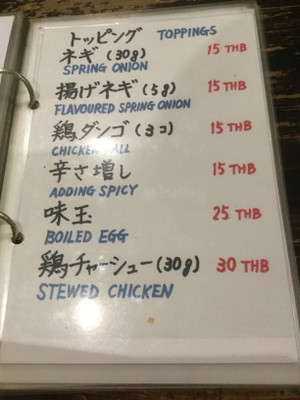 トッピング TOPPINGS
ネギ(30g) 15 THB
SPRING ONION
揚げネギ(5g) 15 THB
FLAVOURED SPRING ONION
鶏ダンゴ(3コ) 15 THB
CHICKEN BALL
辛さ増し 15 THB
ADDING SPICY
味玉 25 THB
BOILED EGG
鶏チャーシュー(30g) 30 THB
STEWED CHICKEN